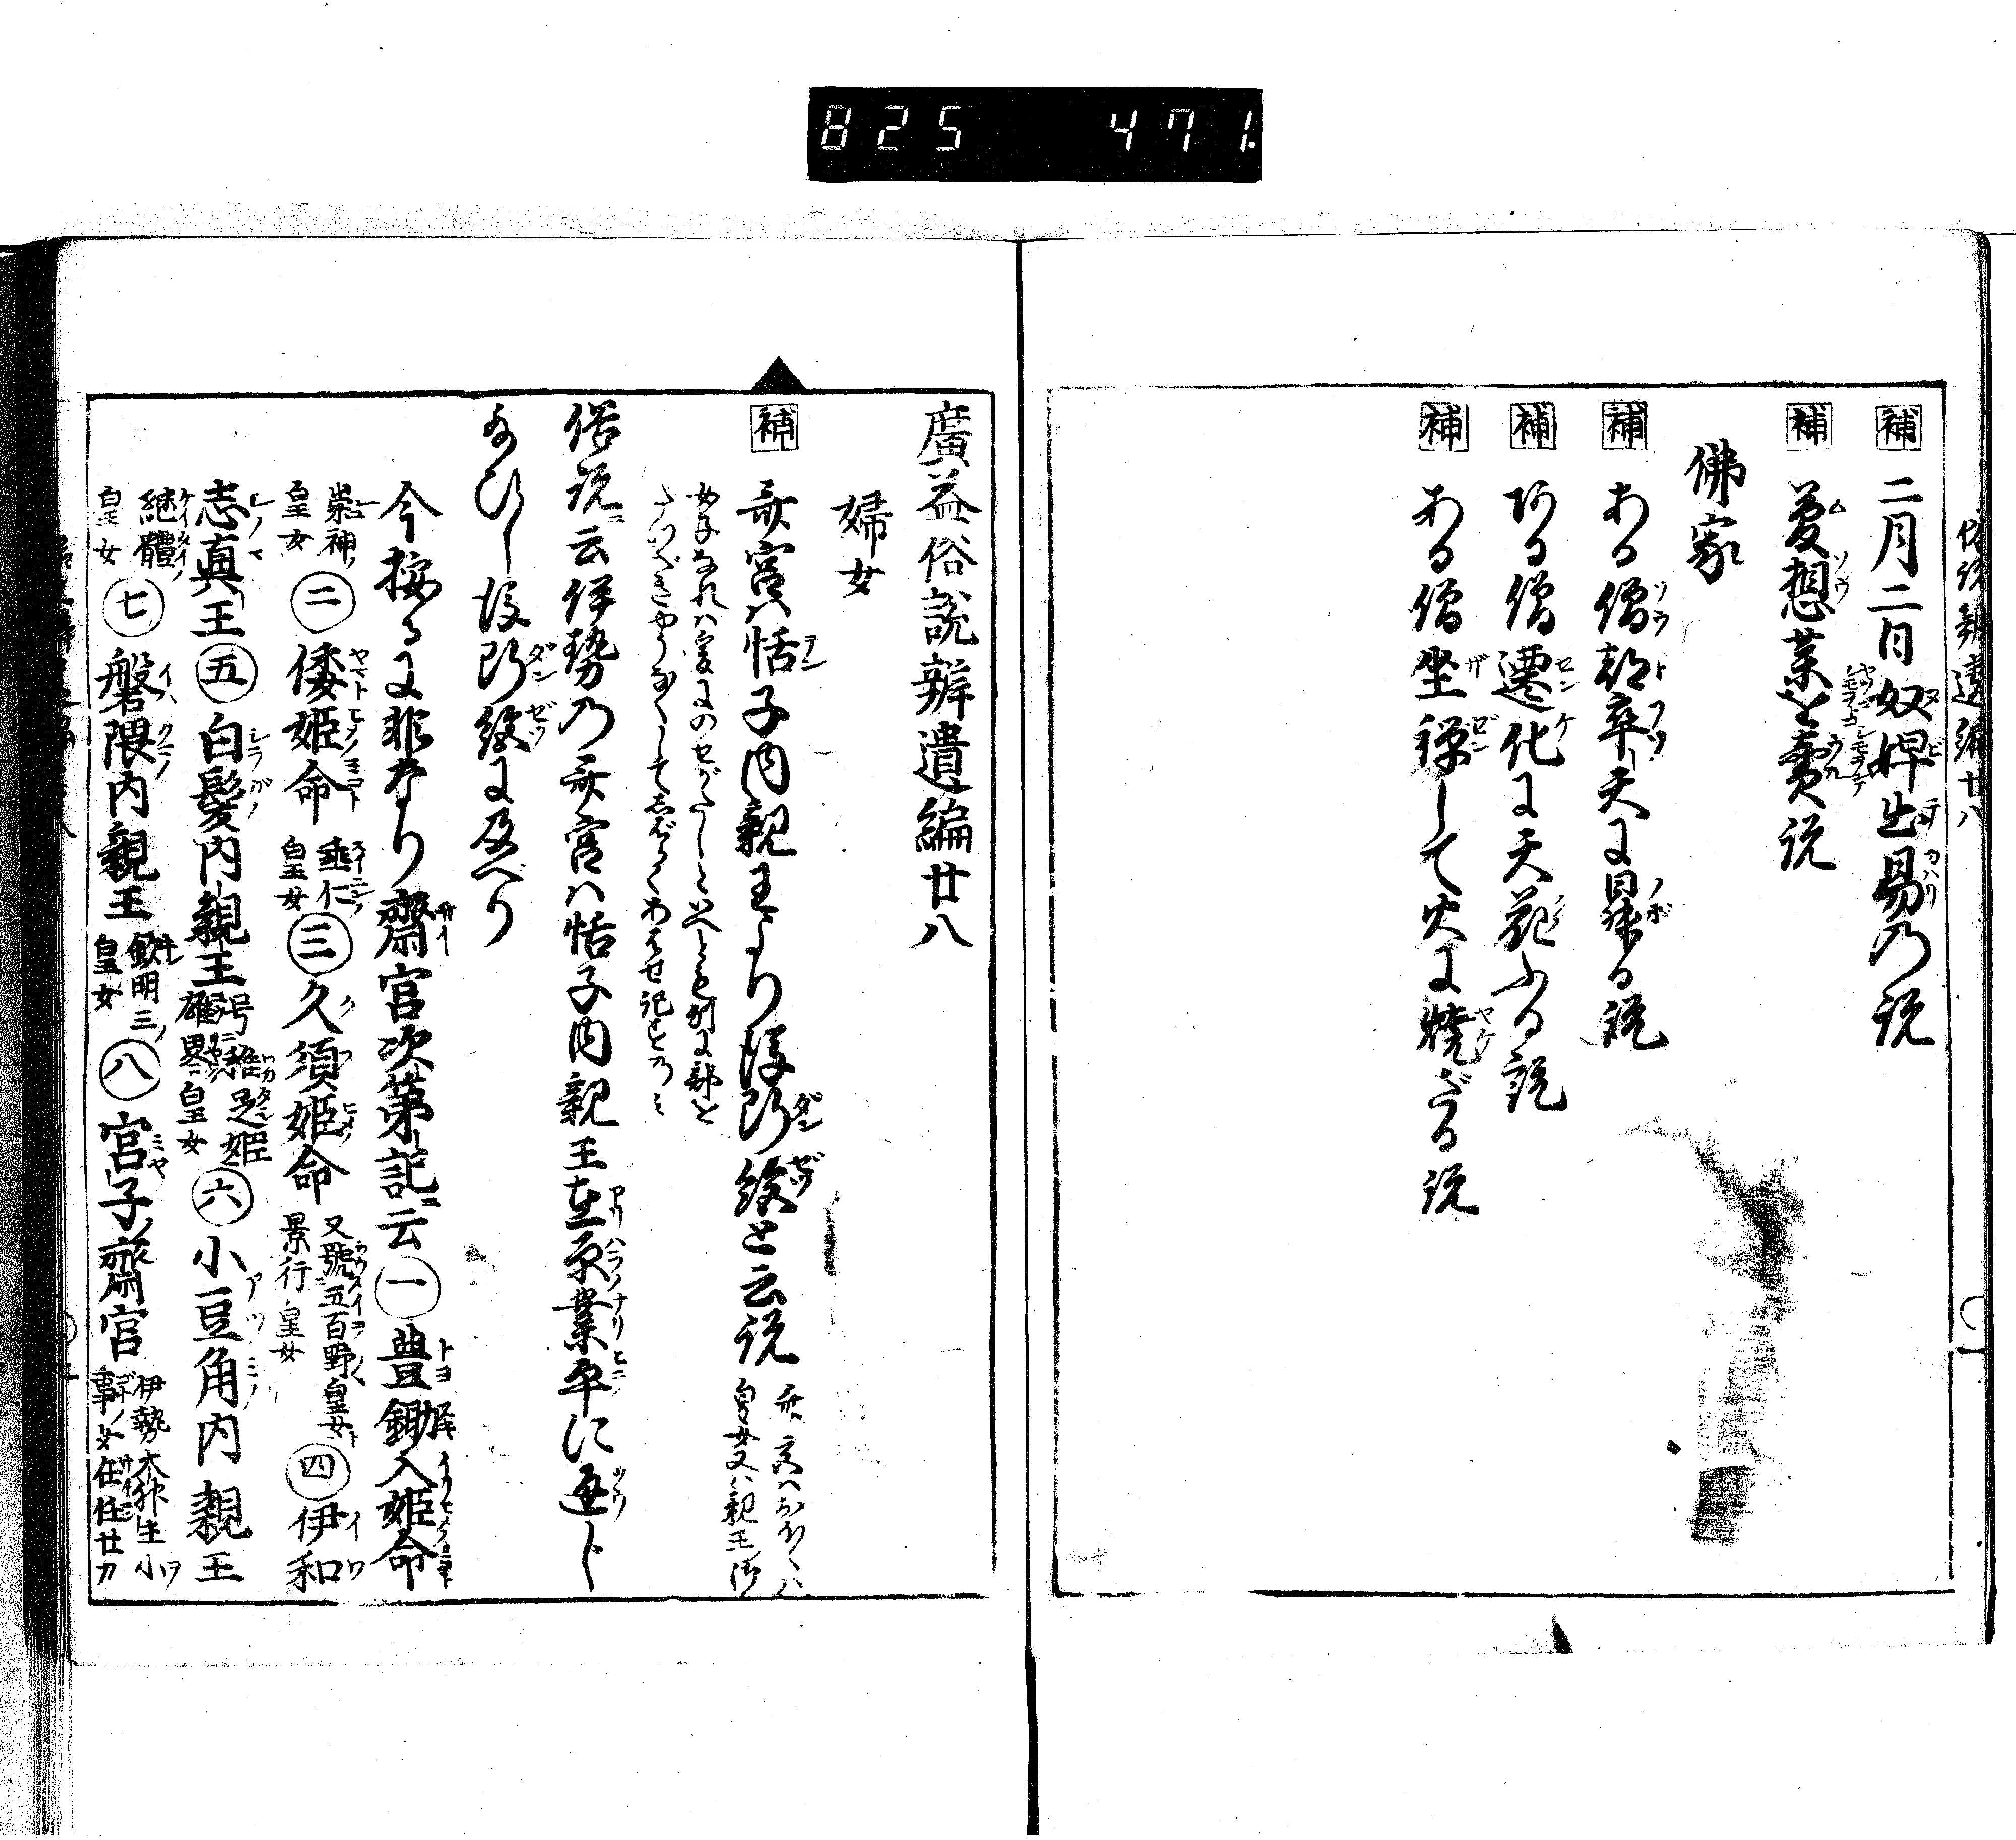 825 471.
俗説辨遺編廿八
補 二月二日奴婢出易の説
補 夢想薬を賣説
佛家
補 ある僧都率天に昇る説
補 ある僧遷化に天花ふる説
補 ある僧坐禅して火に焼ざる説
廣益俗説辨遺編廿八
婦女
補 斎宮ハ恬子内親王より後断絶と云説
皇女又ハ親王の
女子なれハ
俗説ニ云伊勢の斎宮ハ恬子内親王在原業平に通じ
給ひし後断絶に及べり
今按るに非なり齋宮次第記ニ云㊀豊鋤入姫命
崇神ノ皇女㊁倭姫命垂仁ノ皇女㊂久須姫命又號五百野皇女ト景行皇女㊃伊和
志真王㊄白髪内親王号稚足姫雄畧皇女㊅小豆角内親王
継體ノ皇女㊆磐隈内親王欽明三ノ皇女㊇宮子齋宮伊勢大神主小事ノ女任住廿九